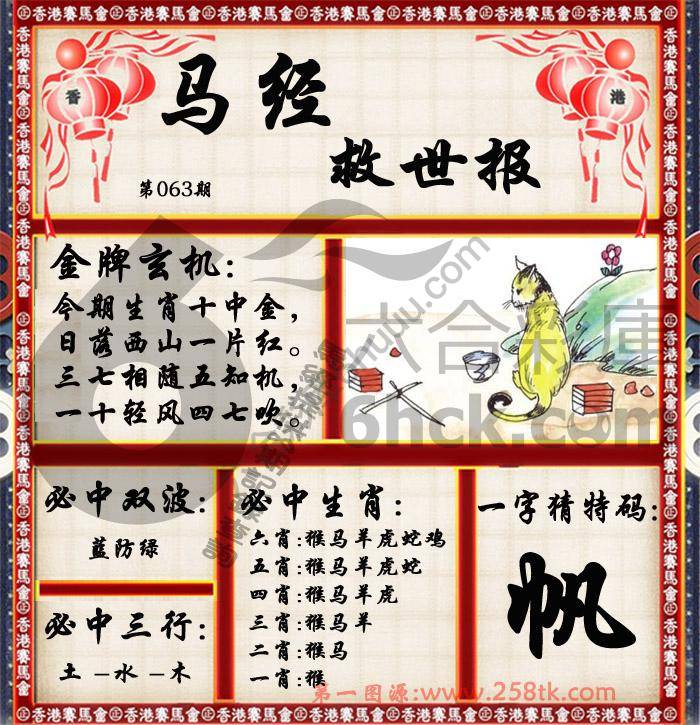 香港賽馬會
香
港
马经
救世报
第063期
金牌玄机:
今期生肖十中金,
日落西山一片红。
三七相随五知机,
一十轻风四七吹。
六合彩庫
6hck.com
必中双波:
蓝防绿
必中三行:
土-水-木
必中生肖:
六肖:猴马羊虎蛇鸡
五肖:猴马羊虎蛇
四肖:猴马羊虎
三肖:猴马羊
二肖:猴马
一肖:猴
一字猜特码:
帆
第一图源:www.258tk.com